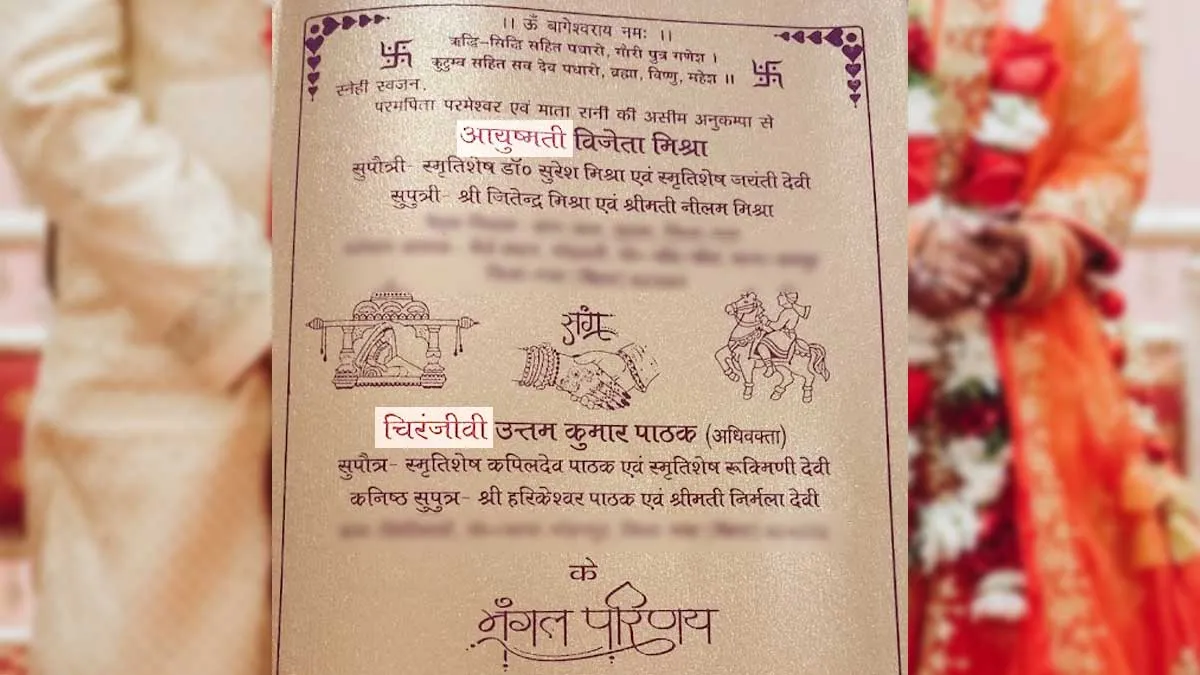 ।। ऊँ बागेश्वराय नमः ।।
ऋद्धि-सिद्धि सहित पधारो, गौरी पुत्र गणेश ।
कुटुम्ब सहित सब देव पधारो, ब्रह्मा, विष्णु, महेश ॥
स्नेही स्वजन,
परमपिता परमेश्वर एवं माता रानी की असीम अनुकम्पा से
आयुष्मती विजेता मिश्रा
सुपौत्री- स्मृतिशेष डॉ० सुरेश मिश्रा एवं स्मृतिशेष जयंती देवी
सुपुत्री- श्री जितेन्द्र मिश्रा एवं श्रीमती नीलम मिश्रा
संग
चिरंजीवी उत्तम कुमार पाठक (अधिवक्ता)
सुपौत्र- स्मृतिशेष कपिलदेव पाठक एवं स्मृतिशेष रूक्मिणी देवी
कनिष्ठ सुपुत्र- श्री हरिकेश्वर पाठक एवं श्रीमती निर्मला देवी
के
मंगल परिणय